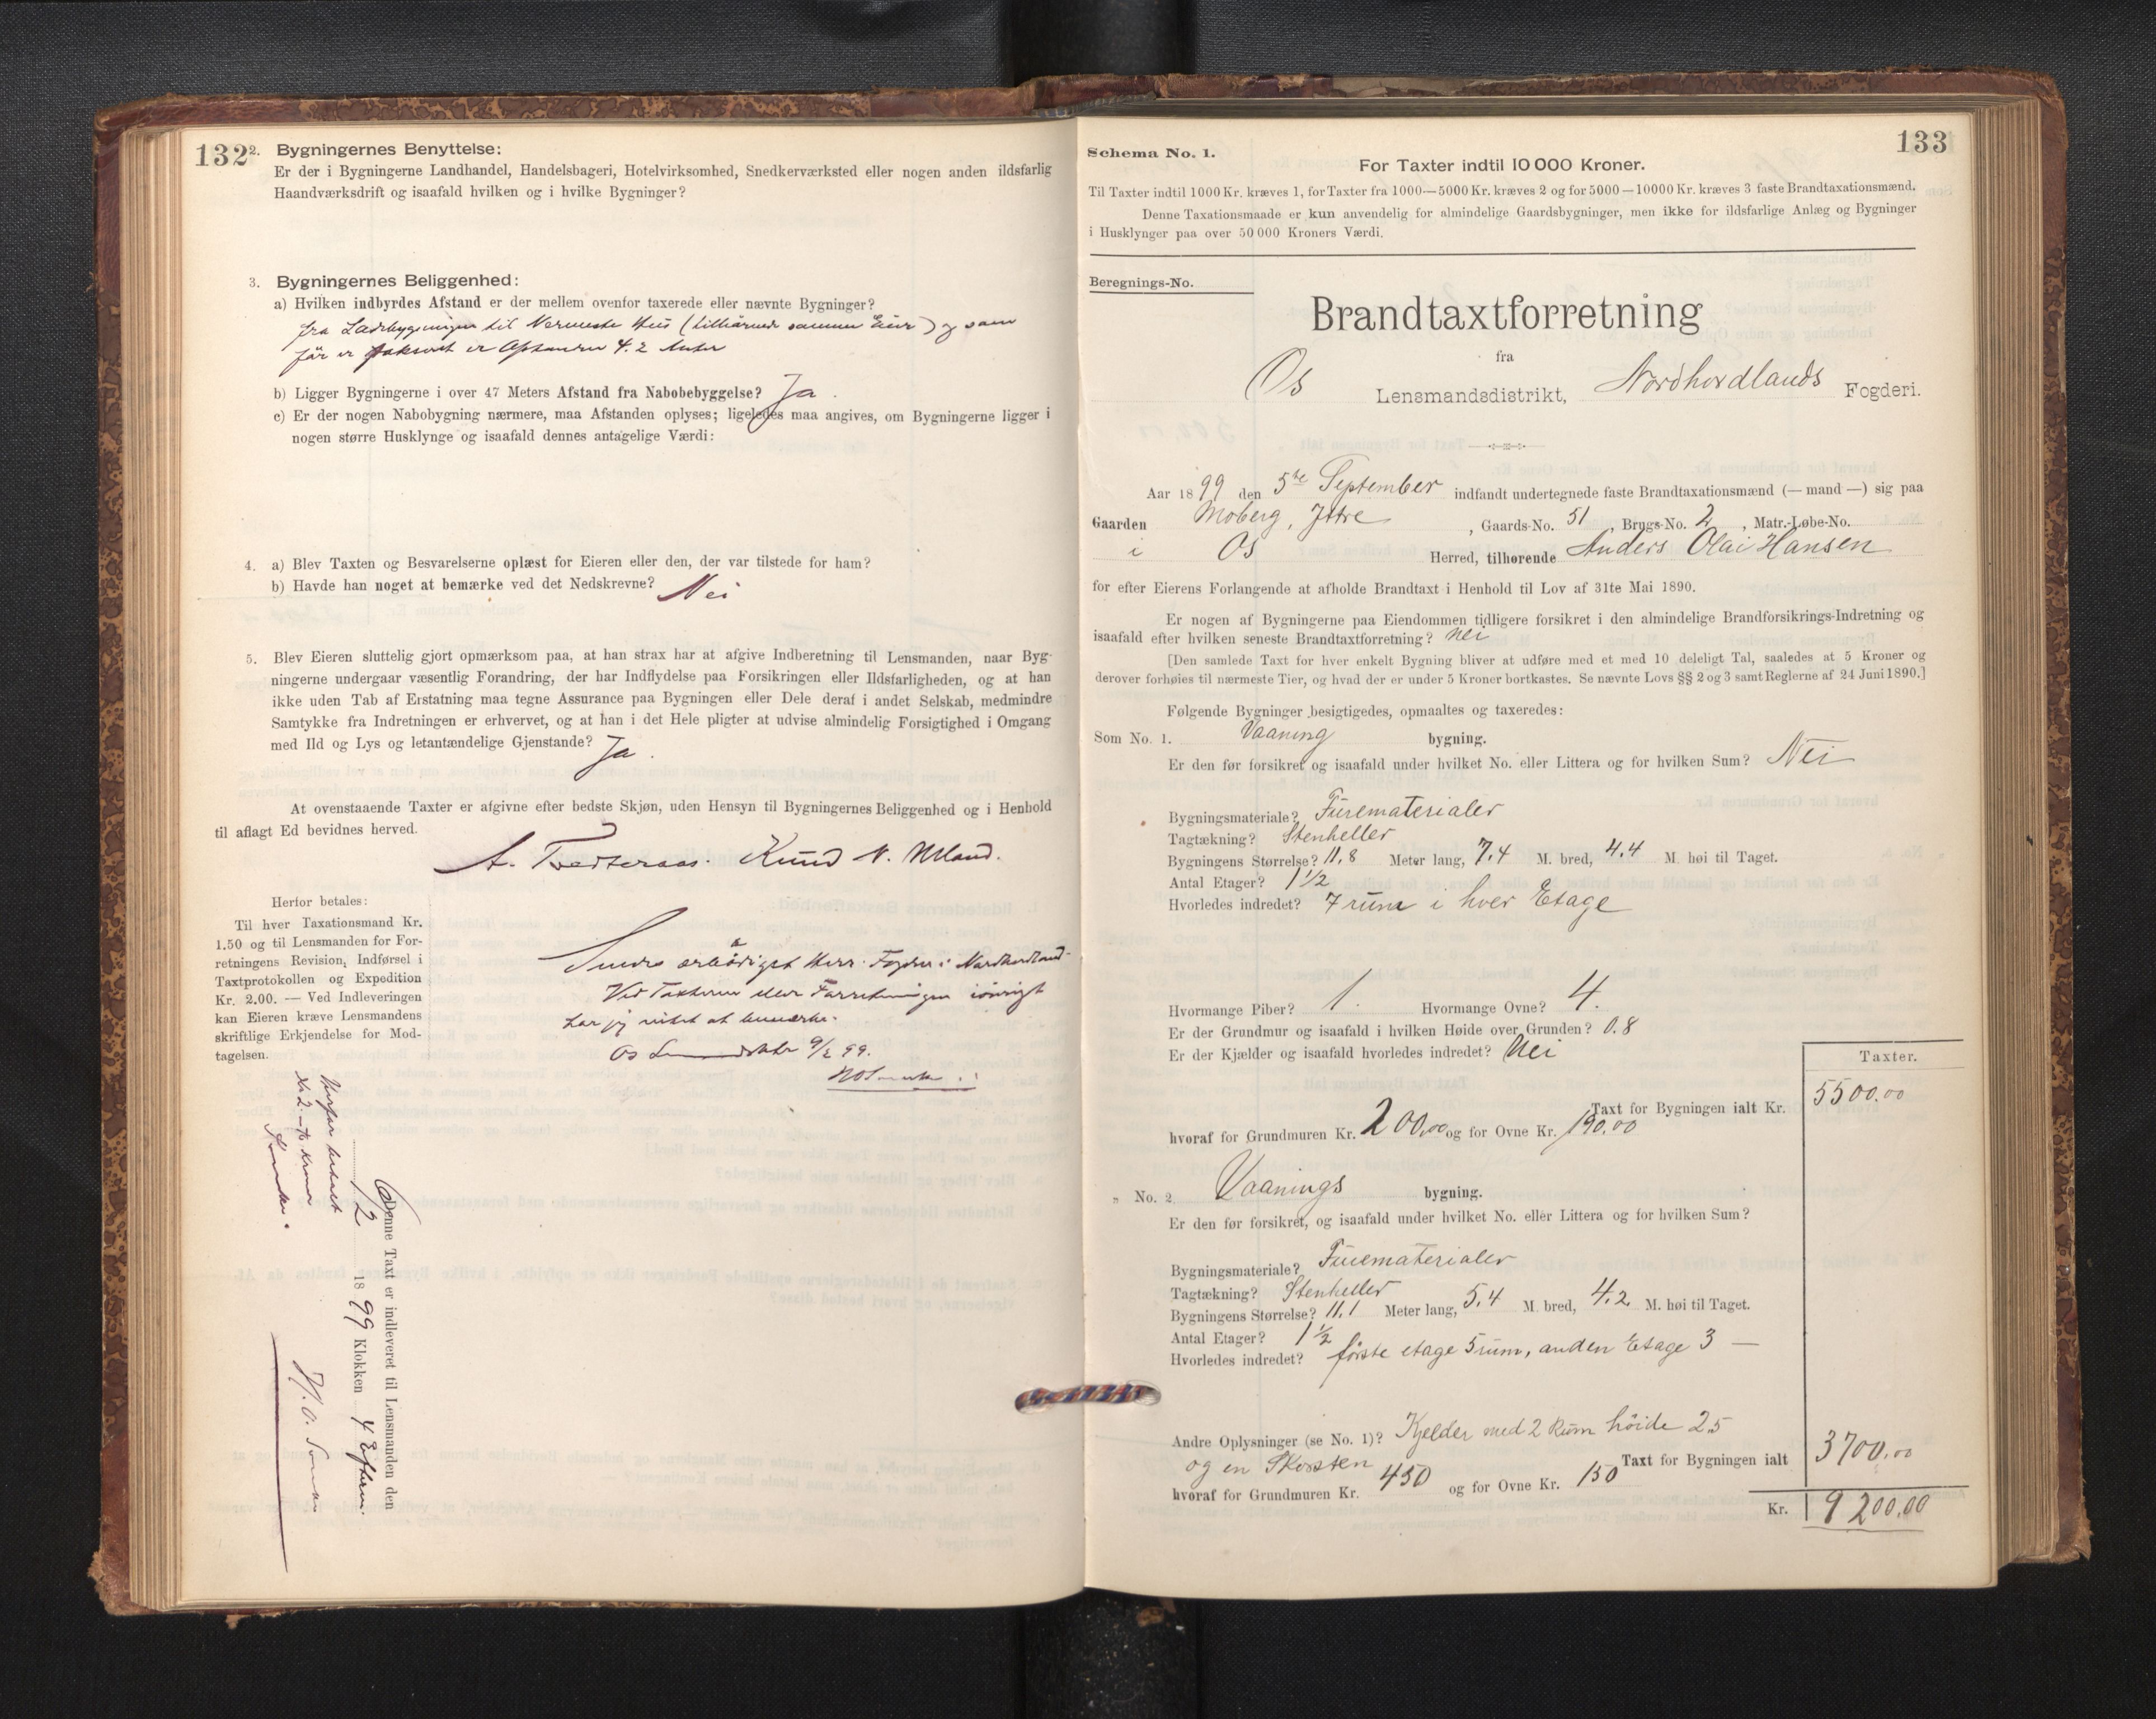 132
2. Bygningernes Benyttelse:
Er der i Bygningerne Landhandel, Handelsbageri, Hotelvirksomhed, Snedkerværksted eller nogen anden ildsfarlig
Haandværksdrift og isaafald hvilken og i hvilke Bygninger?
3. Bygningernes Beliggenhed:
a) Hvilken indbyrdes Afstand er der mellem ovenfor taxerede eller nævnte Bygninger?
fra Ladebygningen til Nermeste Hus (tilhørende samme Eier) og som
før er er Afstanden 4.2
b) Ligger Bygningerne i over 47 Meters Afstand fra Nabobebyggelse? Ja.
c) Er der nogen Nabobygning nærmere, maa Afstanden oplyses; ligeledes maa angives, om Bygningerne ligger i
nogen større Husklynge og isaafald dennes antagelige Værdi:
4. a) Blev Taxten og Besvarelserne oplæst for Eieren eller den, der var tilstede for ham?
b) Havde han noget at bemærke ved det Nedskrevne? Nei
5. Blev Eieren sluttelig gjort opmærksom paa, at han strax har at afgive Indberetning til Lensmanden, naar Byg-
ningerne undergaar væsentlig Forandring, der har Indflydelse paa Forsikringen eller Ildsfarligheden, og at han
ikke uden Tab af Erstatning maa tegne Assurance paa Bygningen eller Dele deraf i andet Selskab, medmindre
Samtykke fra Indretningen er erhvervet, og at han i det Hele pligter at udvise almindelig Forsigtighed i Omgang
med Ild og Lys og letantændelige Gjenstande? Ja.
At ovenstaaende Taxter er afgivne efter bedste Skjøn, uden Hensyn til Bygningernes Beliggenhed og i Henhold
til aflagt Ed bevidnes herved.
A. Tveiteraas. Knud N.
Herfor betales:
Til hver Taxationsmand Kr.
1.50 og til Lensmanden for For-
retningens Revision, Indførsel i
Taxtprotokollen og Expedition
Kr. 2.00. — Ved Indleveringen
kan Eieren kræve Lensmandens
skriftlige Erkjendelse for Mod-
tagelsen.
Sendes ærbødigst Herr Fogden i Nordhordland.
Ved Taxterne eller Forretningen iøvrigt
har jeg intet at bemærke.
Os 99.
Herfor betalt
Kr 2 - to kroner
Denne Taxt er indleveret til Lensmanden den
1899 Klokken 4 Efterm.
133
Schema No. 1.
For Taxter indtil 10 000 Kroner.
Til Taxter indtil 1000 Kr. kræves 1, for Taxter fra 1000—5000 Kr. kræves 2 og for 5000—10000 Kr. kræves 3 faste Brandtaxationsmænd.
Denne Taxationsmaade er kun anvendelig for almindelige Gaardsbygninger, men ikke for ildsfarlige Anlæg og Bygninger
i Husklynger paa over 50 000 Kroners Værdi.
Beregnings-No.
Brandtaxtforretning
fra
Os Lensmandsdistrikt, Nordhordlands Fogderi.
Aar 1899 den 5te September indfandt undertegnede faste Brandtaxationsmænd (— mand —) sig paa
Gaarden Moberg, Ytre, Gaards-No. 51, Brugs-No. 2, Matr.-Løbe-No.
i Os Herred, tilhørende Anders Olai Hansen
for efter Eierens Forlangende at afholde Brandtaxt i Henhold til Lov af 31te Mai 1890.
Er nogen af Bygningerne paa Eiendommen tidligere forsikret i den almindelige Brandforsikrings-Indretning og
isaafald efter hvilken seneste Brandtaxtforretning? nei
[Den samlede Taxt for hver enkelt Bygning bliver at udføre med et med 10 deleligt Tal, saaledes at 5 Kroner og
derover forhøies til nærmeste Tier, og hvad der er under 5 Kroner bortkastes. Se nævnte Lovs §§ 2 og 3 samt Reglerne af 24 Juni 1890.]
Følgende Bygninger besigtigedes, opmaaltes og taxeredes:
Som No. 1. Vaaning bygning.
Er den før forsikret og isaafald under hvilket No. eller Littera og for hvilken Sum? Nei
Bygningsmateriale? Furematerialer
Tagtækning? Stenheller
Bygningens Størrelse? 11.8 Meter lang, 7.4 M. bred, 4.4 M. høi til Taget.
Antal Etager? 1 1/2
Hvorledes indredet? 7 rum i hver Etage
Hvormange Piber? 1. Hvormange Ovne? 4.
Er der Grundmur og isaafald i hvilken Høide over Grunden? 0.8
Er der Kjælder og isaafald hvorledes indredet? Nei
Taxter.
Taxt for Bygningen ialt Kr. 5500.00
hvoraf for Grundmuren Kr. 200.00 og for Ovne Kr. 190.00
„ No. 2 Vaanings bygning.
Er den før forsikret, og isaafald under hvilket No. eller Littera og for hvilken Sum?
Bygningsmateriale? Furematerialer
Tagtækning? Stenheller
Bygningens Størrelse? 11.1 Meter lang, 5.4 M. bred, 4.2 M. høi til Taget.
Antal Etager? 1 1/2
Hvorledes indredet? første etage 5 rum, anden Etage 3 —
Andre Oplysninger (se No. 1)? Kjelder med 2 Rum høide 2.5
og en Skorsten Taxt for Bygningen ialt 3700.00
hvoraf for Grundmuren Kr. 450 og for Ovne Kr. 150
Kr. 9200.00